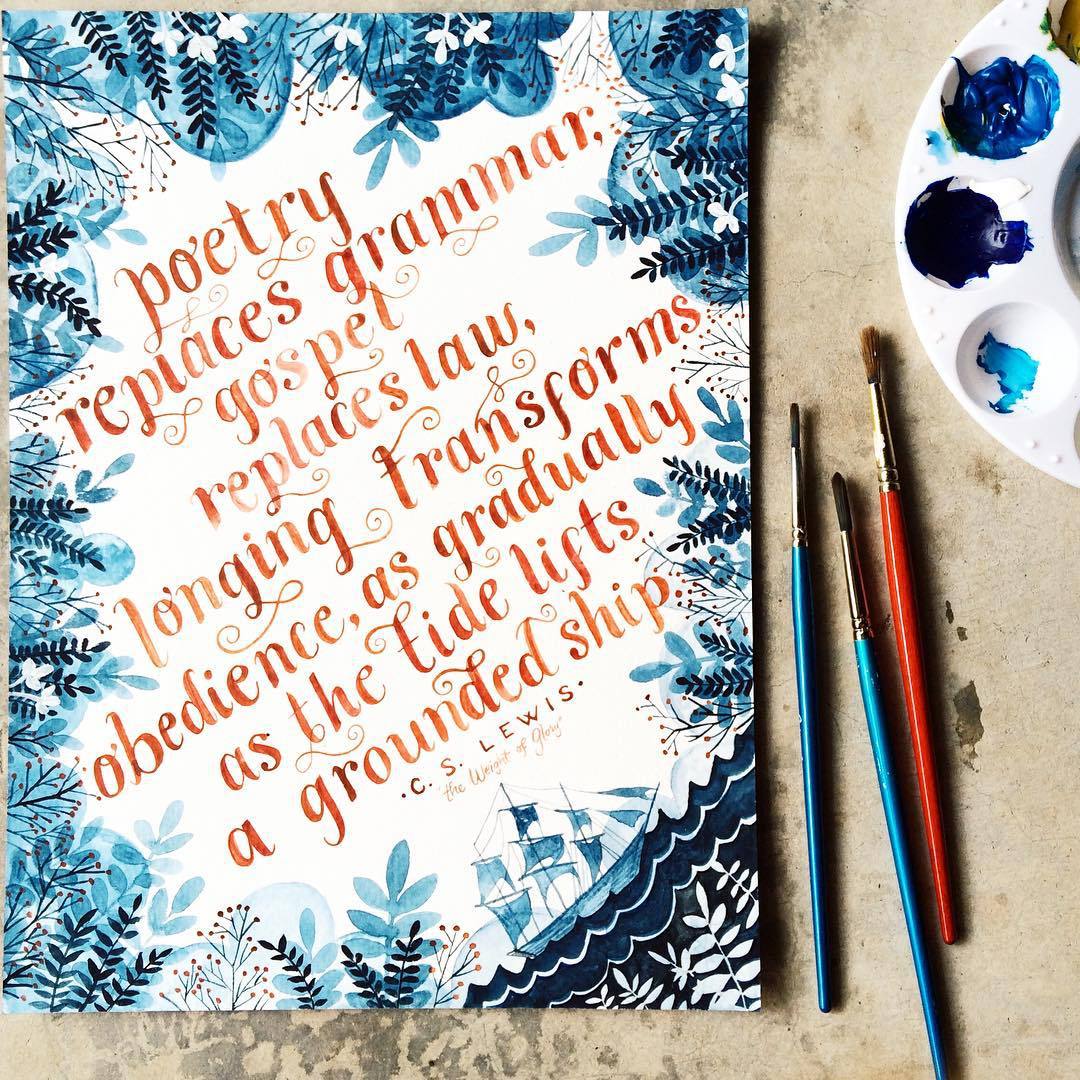 poetry
replaces grammar,
gospel
replaces law,
longing transforms
obedience, as gradually
as the tide lifts
a grounded ship.
·C. S. LEWIS·
"the Weight of Glory"